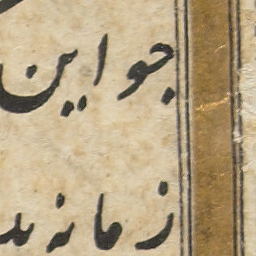 جو این
زمانه بد